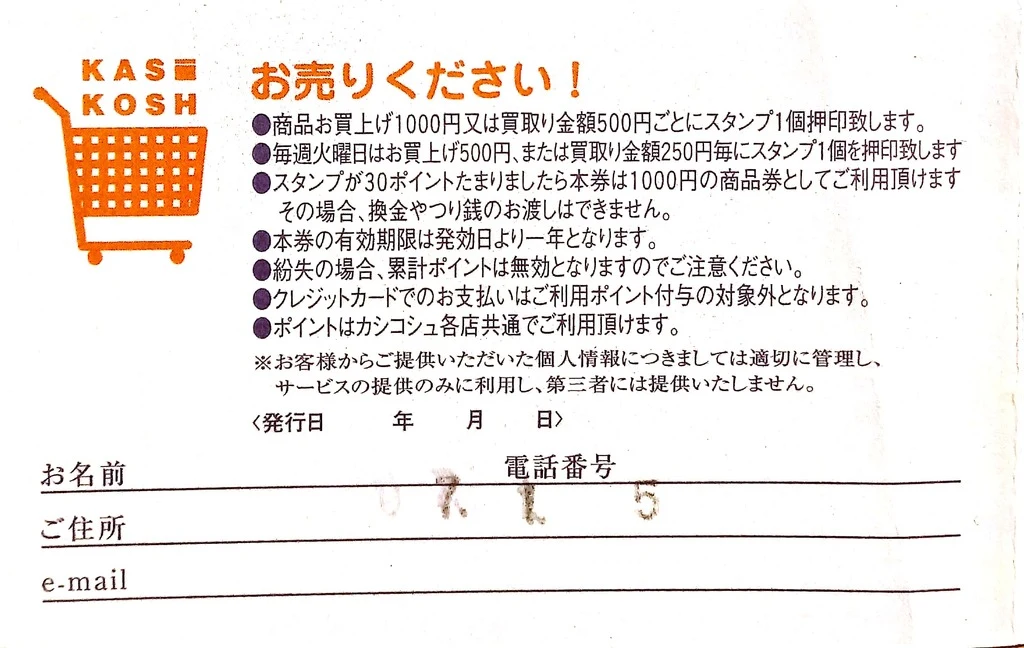 KASI
KOSH
お売りください！
●商品お買上げ1000円又は買取り金額500円ごとにスタンプ1個押印致します。
●毎週火曜日はお買上げ500円、または買取り金額250円毎にスタンプ1個を押印致します
●スタンプが30ポイントたまりましたら本券は1000円の商品券としてご利用頂けます
その場合、換金やつり銭のお渡しはできません。
●本券の有効期限は発効日より一年となります。
●紛失の場合、累計ポイントは無効となりますのでご注意ください。
●クレジットカードでのお支払いはご利用ポイント付与の対象外となります。
●ポイントはカシコシュ各店共通でご利用頂けます。
※お客様からご提供いただいた個人情報につきましては適切に管理し、
サービスの提供のみに利用し、第三者には提供いたしません。
〈発行日 年 月 日〉
お名前 電話番号
07. 1. 5
ご住所
e-mail